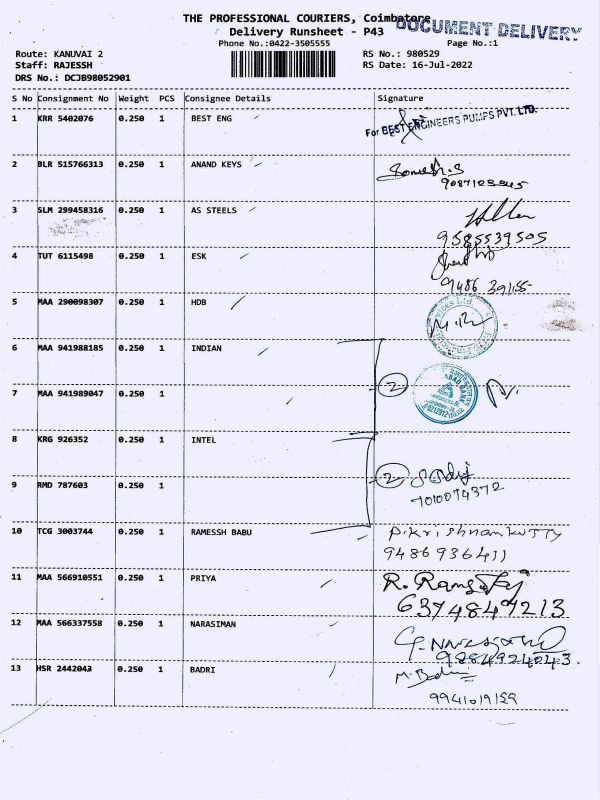 THE PROFESSIONAL COURIERS, Coimbatore
DOCUMENT DELIVERY
Delivery Runsheet - P43
Phone No.:0422-3505555
Page No.:1
Route: KANUVAI 2
RS No.: 980529
Staff: RAJESSH
RS Date: 16-Jul-2022
DRS No.: DCJB98052901
S No Consignment No Weight PCS Consignee Details Signature
1 KRR 5402076 0.250 1 BEST ENG
For BEST ENGINEERS PUMPS PVT. LTD.
2 BLR 515766313 0.250 1 ANAND KEYS
3 SLM 299458316 0.250 1 AS STEELS
9585539505
4 TUT 6115498 0.250 1 ESK
9486 39155
5 MAA 290098307 0.250 1 HDB
6 MAA 941988185 0.250 1 INDIAN
2
7 MAA 941989047 0.250 1
8 KRG 926352 0.250 1 INTEL
2
9 RMD 787603 0.250 1
7010074372
10 TCG 3003744 0.250 1 RAMESSH BABU
P.Krishnamkutty
9486936411
11 MAA 566910551 0.250 1 PRIYA
6374847213
12 MAA 566337558 0.250 1 NARASIMAN
9884924043.
13 HSR 2442043 0.250 1 BADRI
M.Badri
9941019159